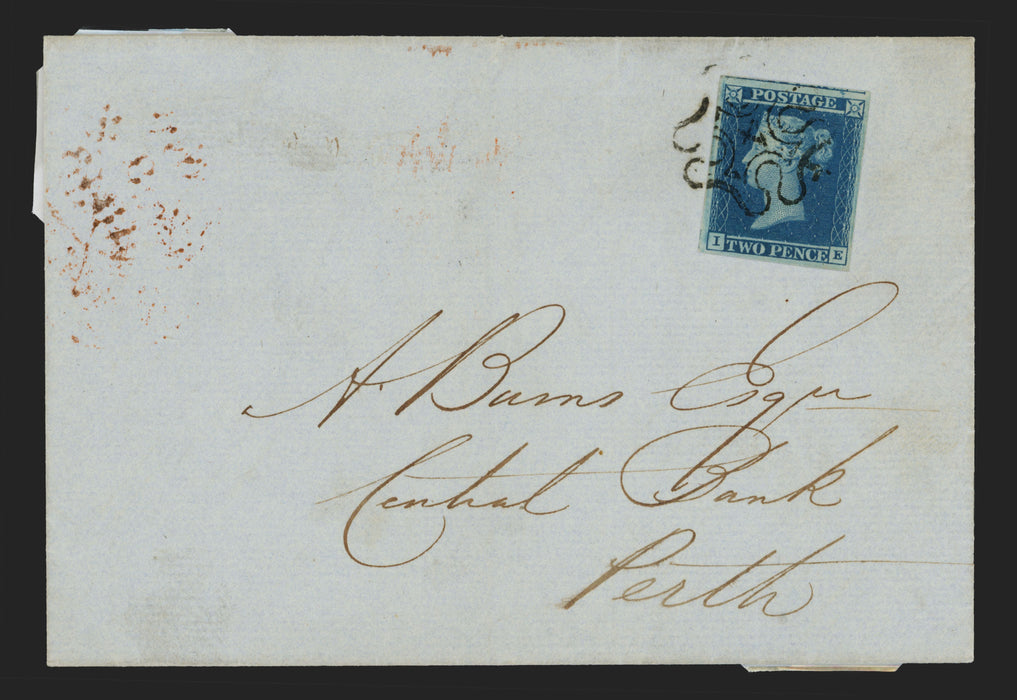 POSTAGE
I TWO PENCE E
A. Burns Esqr
Central Bank
Perth